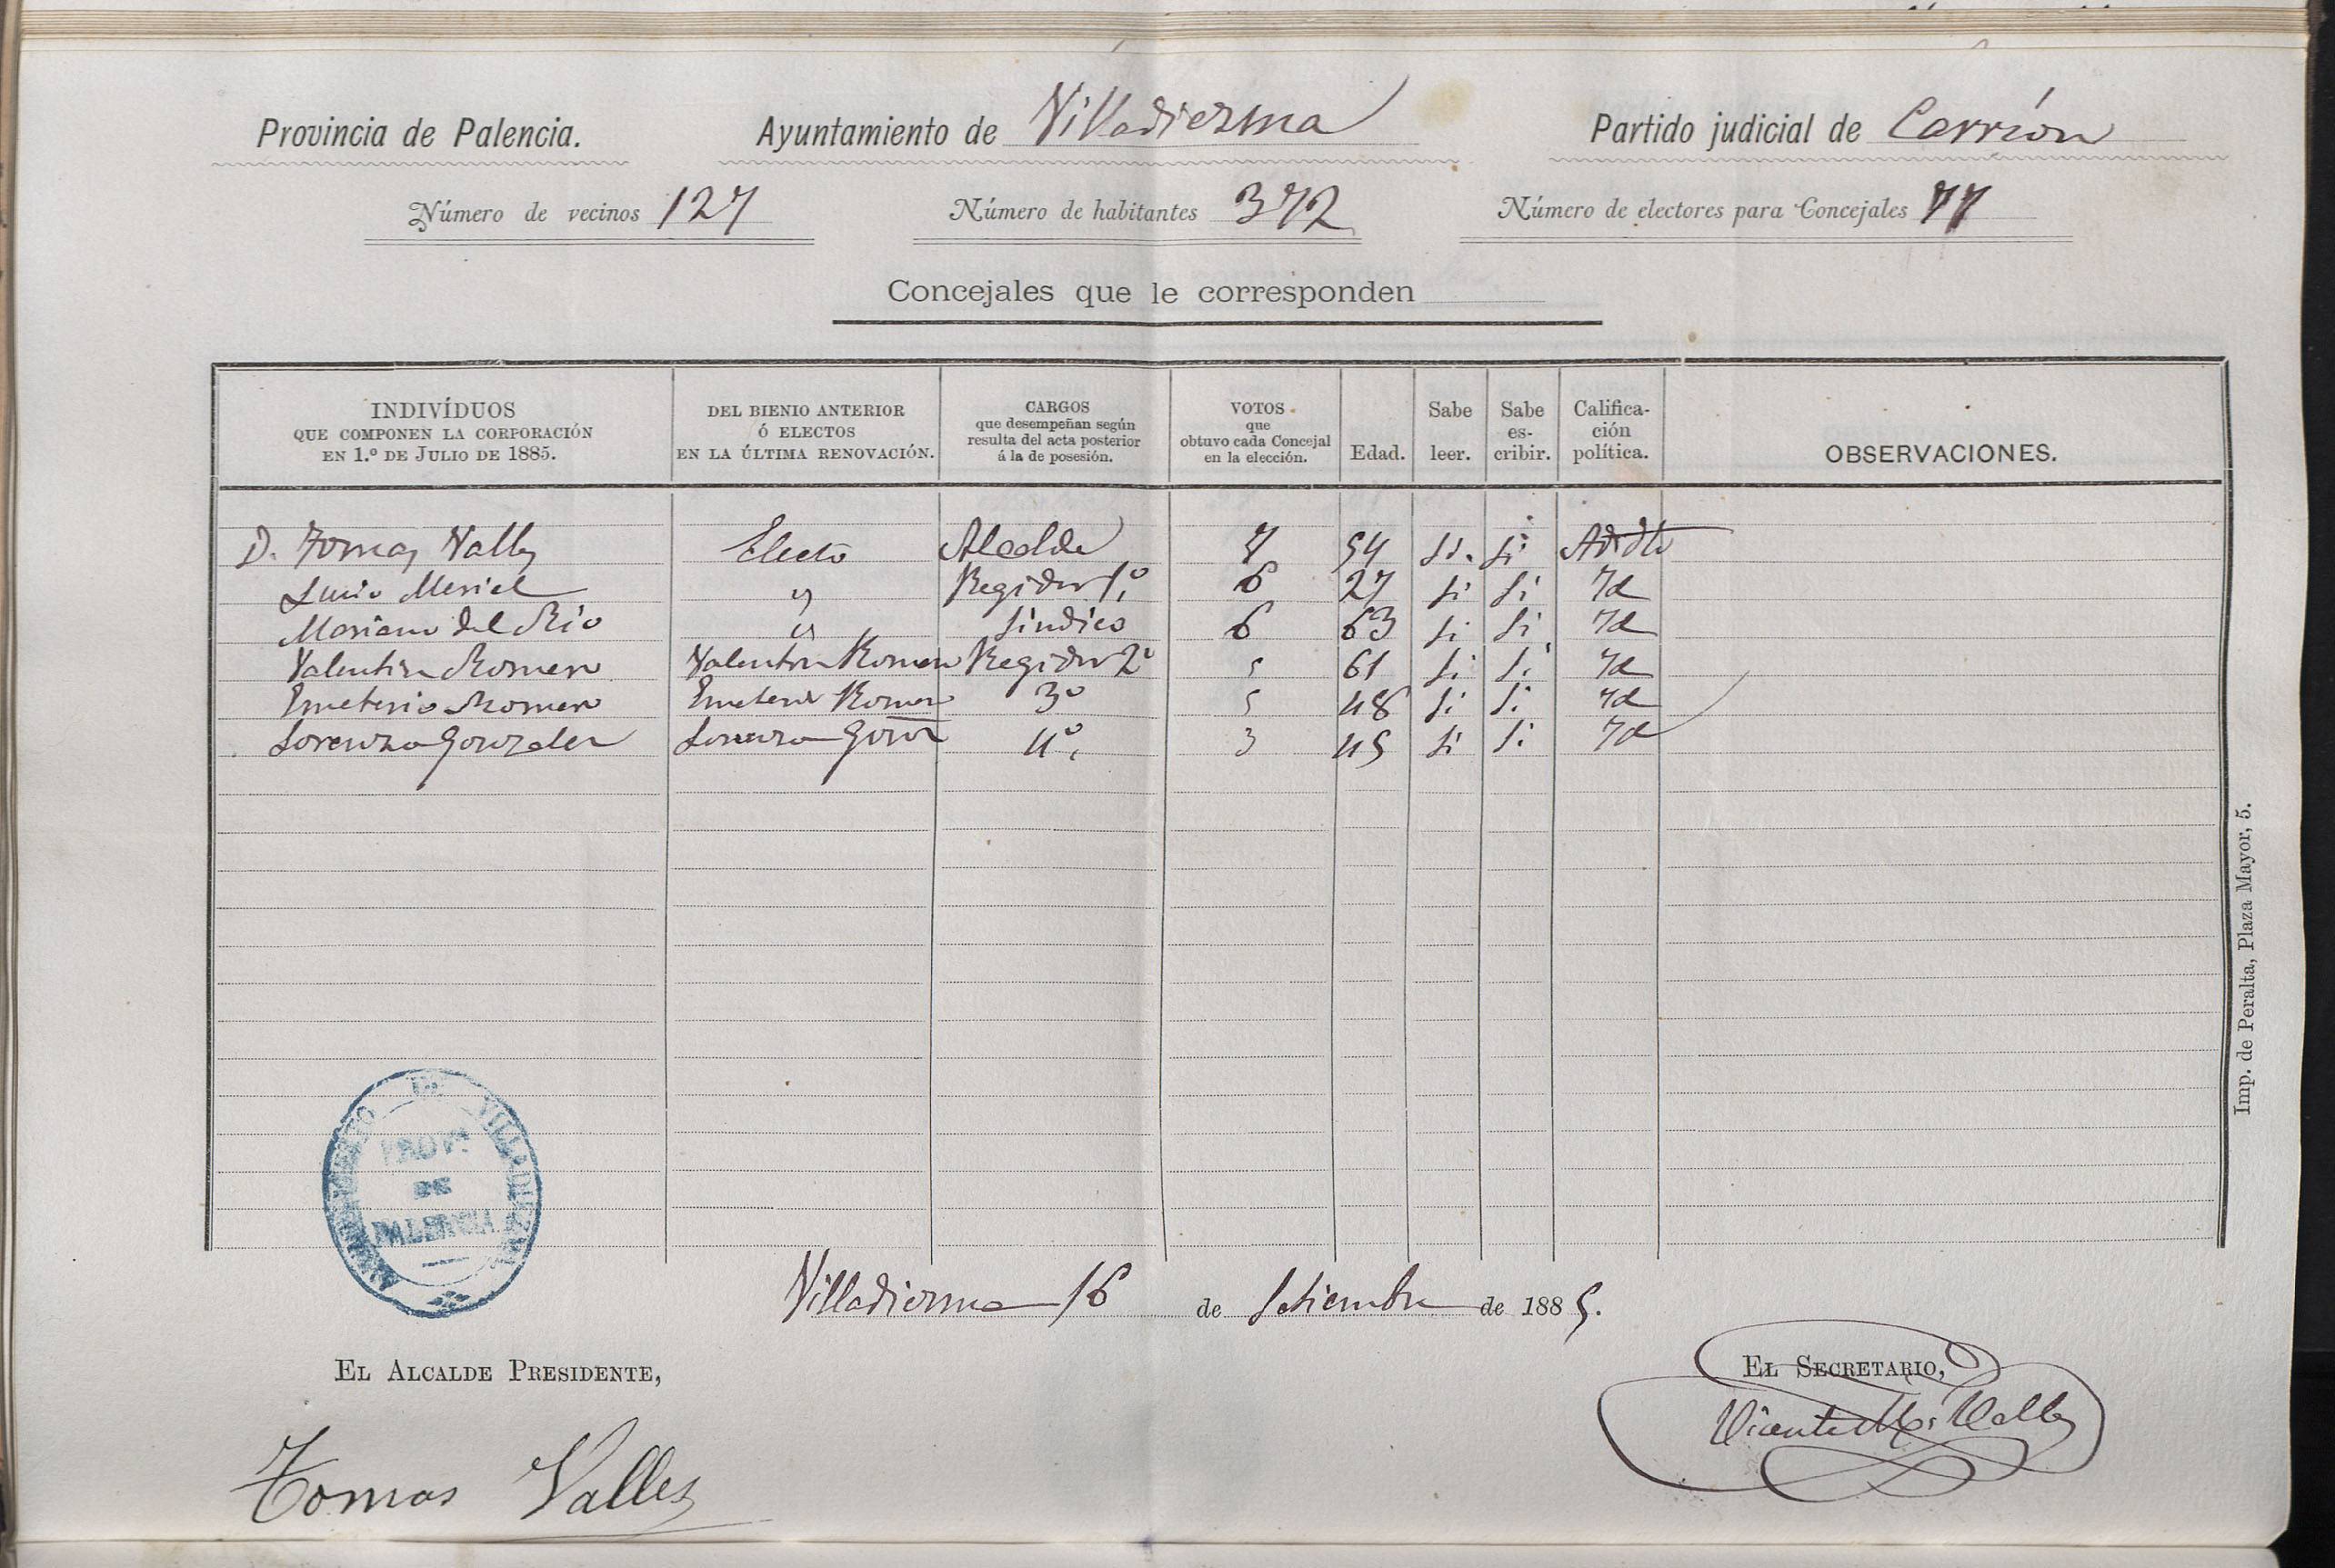 Provincia de Palencia. Ayuntamiento de Villadiezma Partido judicial de Carrión
Número de vecinos 127 Número de habitantes 372 Número de electores para Concejales 77
Concejales que le corresponden
INDIVÍDUOS QUE COMPONEN LA CORPORACIÓN EN 1.º DE JULIO DE 1885. DEL BIENIO ANTERIOR Ó ELECTOS EN LA ÚLTIMA RENOVACIÓN. CARGOS que desempeñan según resulta del acta posterior á la de posesión. VOTOS que obtuvo cada Concejal en la elección. Edad. Sabe leer. Sabe es-cribir. Califica-ción política. OBSERVACIONES.
D. Tomas Valles Electo Alcalde 7 54 Si. Si Adicto
Lucio Meriel " Regidor 1º 6 27 Si Si Id
Mariano del Rio " Sindico 6 63 Si Si Id
Valentin Romero Valentin Romero Regidor 2º 5 61 Si Si Id
Emeterio Romero Emeterio Romero 3º 5 48 Si Si Id
Lorenzo Gonzalez Lorenzo Gonz 4º 3 45 Si Si Id
AYUNTAMIENTO DE VILLADIEZMA
PROVª
DE
PALENCIA
Villadiezma 16 de Setiembre de 1885.
EL ALCALDE PRESIDENTE, EL SECRETARIO,
Tomas Valles Vicente Valles
Imp. de Peralta, Plaza Mayor, 5.